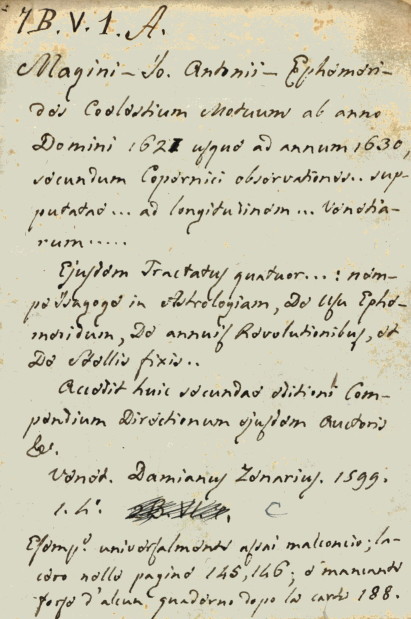 7B.V.1.A.
Magini – Jo. Antonii – Ephemeri-
des Coelestium Motuum ab anno
Domini 1621 usque ad annum 1630,
secundum Copernici observationes.. sup-
putatae... ad longitudinem... Venetia-
rum.....
Ejusdem Tractatus quatuor...: nem-
pe Isagoge in Astrologiam, De Usu Ephe-
meridum, De annuis Revolutionibus, et
De Stellis fixis..
Accedit huic secundae editioni Com-
pendium Directionum ejusdem Auctoris
&c.
Venet. Damianus Zenarius. 1599.
1. 4°. C
Esemp.° universalmente assai malconcio; la-
cero nelle pagine 145, 146; e mancante
forse d'alcun quaderno dopo la carte 188.